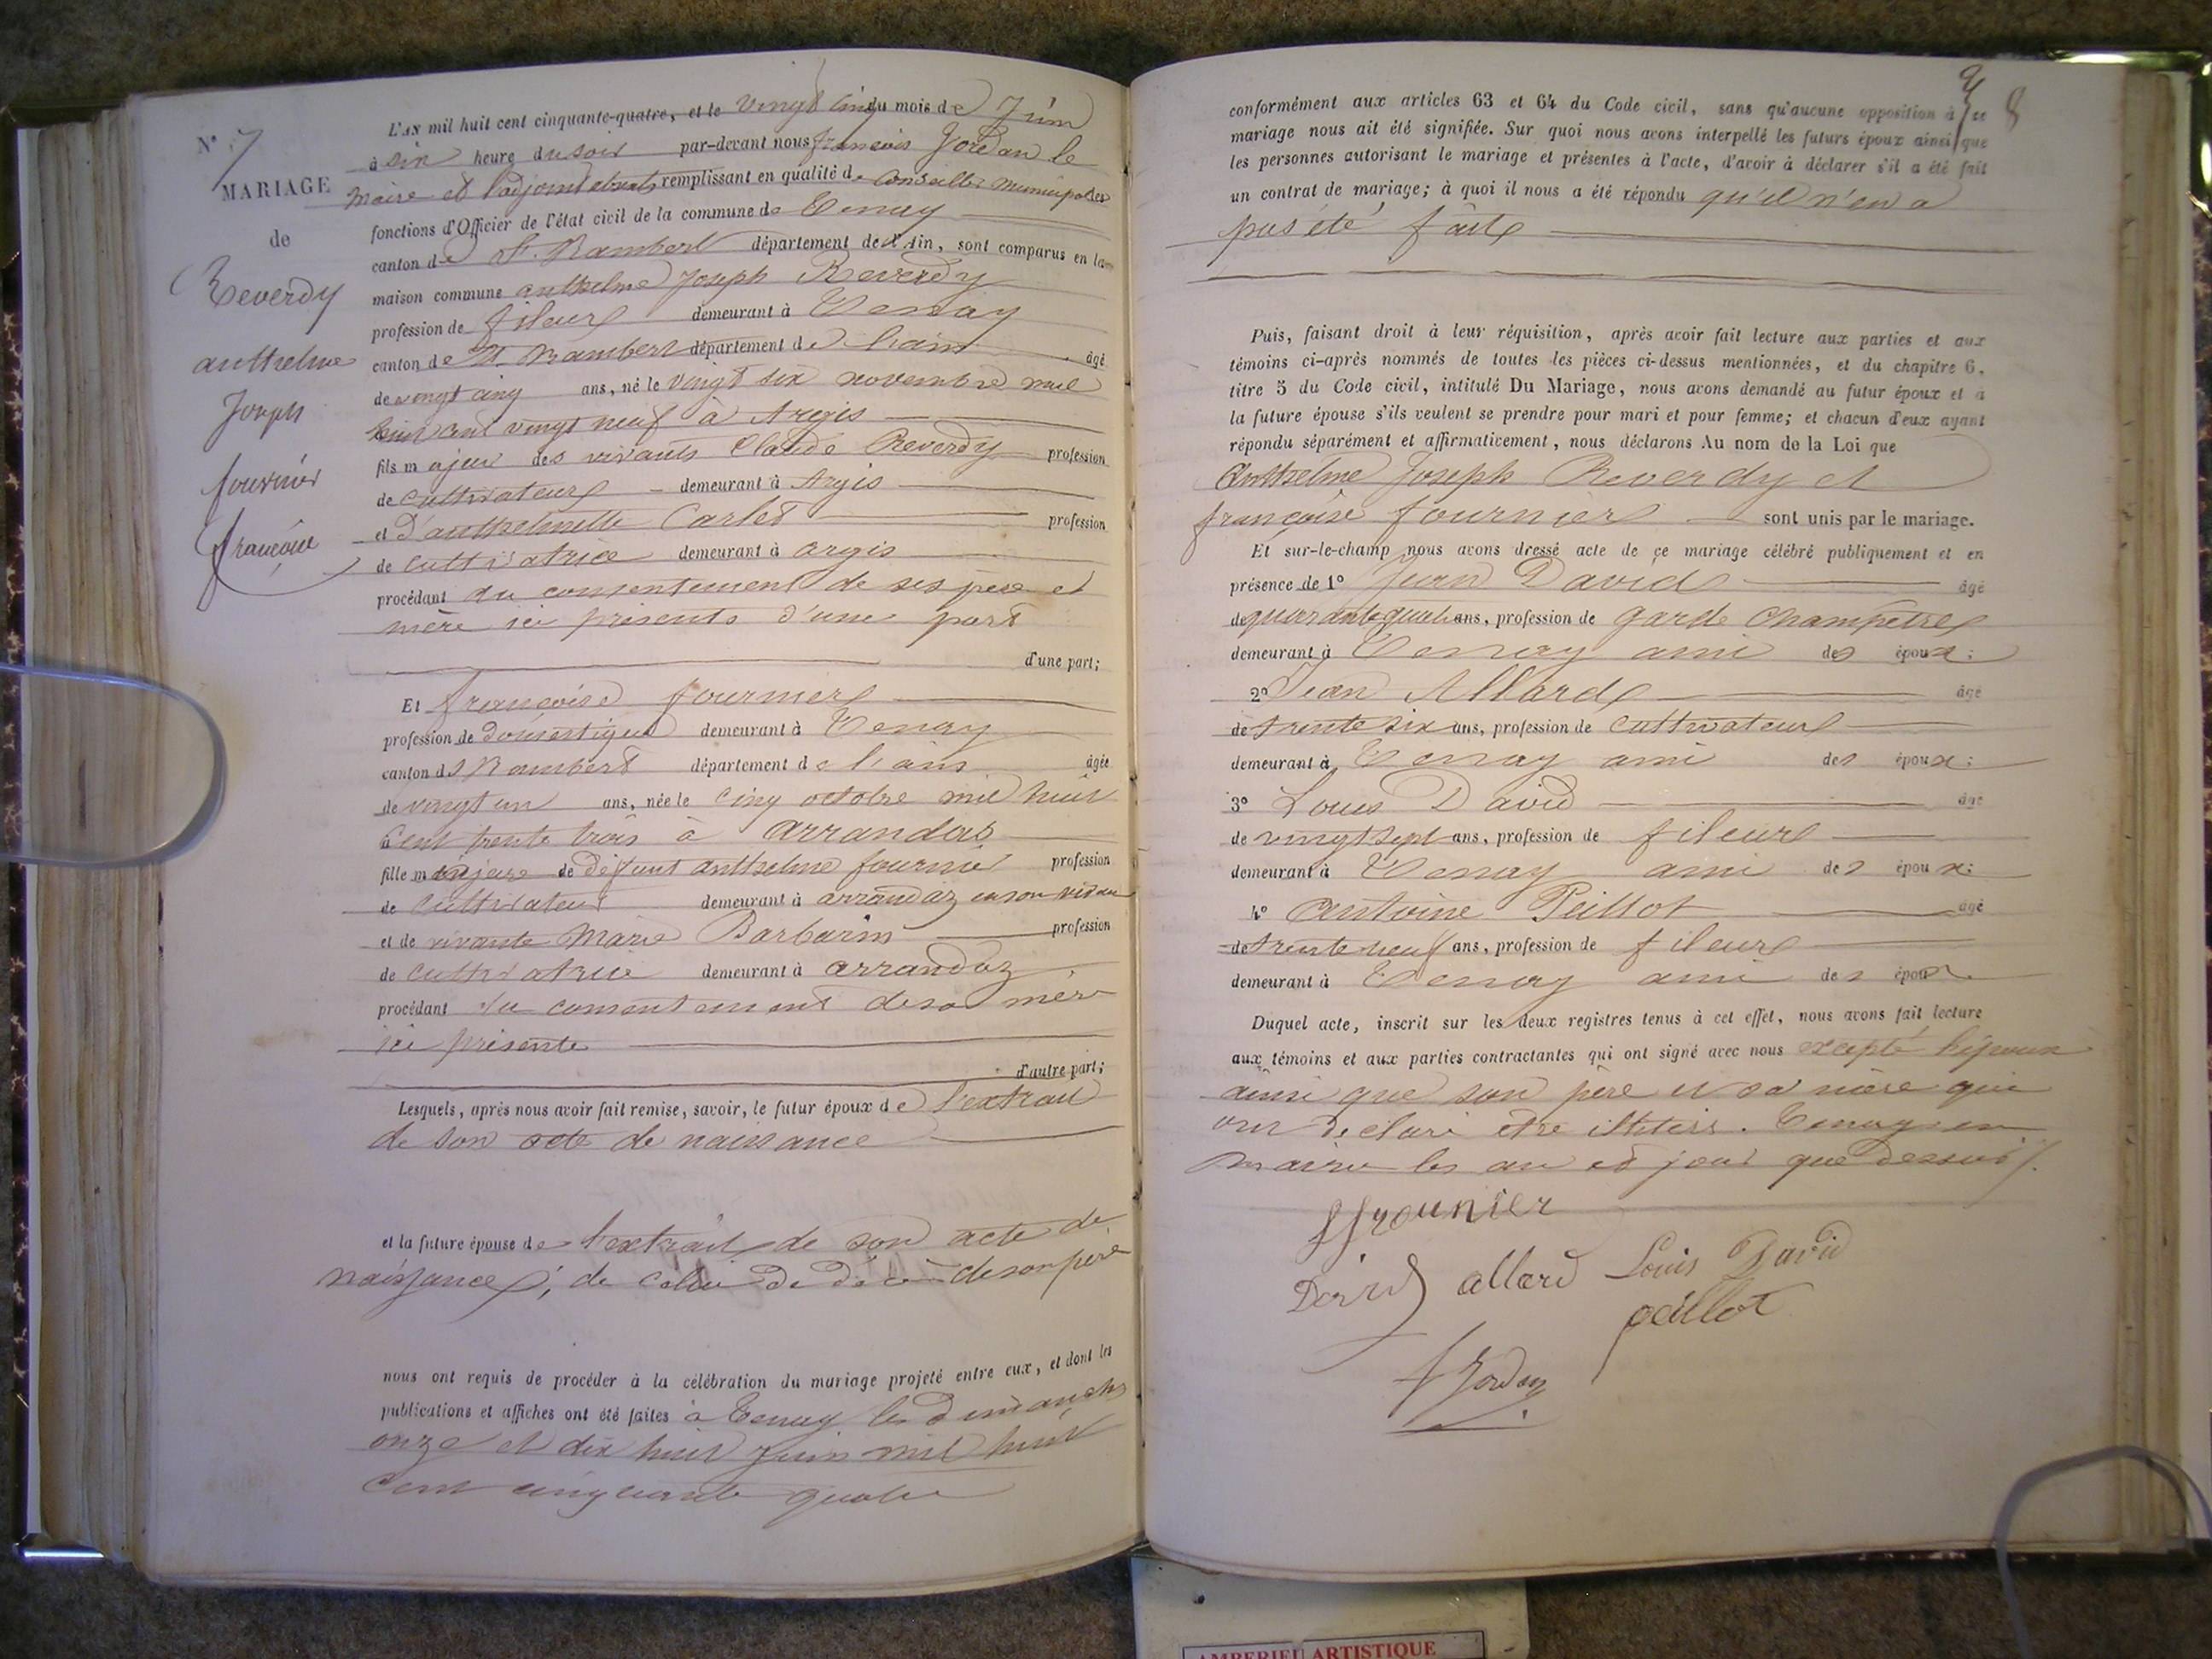 N° 7
MARIAGE
de
Reverdy
anthelme
Joseph
fournier
françoise
L'AN mil huit cent cinquante-quatre, et le vingt cinq du mois de Juin
à six heure du soir par-devant nous françois Jordan le
maire et l'adjoint absents remplissant en qualité de Conseiller municipal les
fonctions d'Officier de l'état civil de la commune de Tenay
canton de St. Rambert département de l'Ain, sont comparus en la
maison commune anthelme Joseph Reverdy
profession de fileur demeurant à Tenay
canton de St Rambert département de l'ain âgé
de vingt cinq ans, né le vingt six novembre mil
huit cent vingt neuf à Argis
fils majeur des vivants Claude Reverdy profession
de cultivateur demeurant à Argis
et D'anthelmette Carlet profession
de cultivatrice demeurant à argis
procédant du consentement de ses père et
mère ici présents d'une part
d'une part;
Et françoise fournier
profession de domestique demeurant à Tenay
canton d St Rambert département de l'ain âgée
de vingt un ans, née le cinq octobre mil huit
cent trente trois à arrandas
fille majeure de défunt anthelme fournier profession
de cultivateur demeurant à arrandaz en son vivant
et de vivante Marie Barbarin profession
de cultivatrice demeurant à arrandaz
procédant du consentement de sa mère
ici présente
d'autre part;
Lesquels, après nous avoir fait remise, savoir, le futur époux de l'extrait
de son acte de naissance
et la future épouse de l'extrait de son acte de
naissance, de celui de décès de son père
nous ont requis de procéder à la célébration du mariage projeté entre eux, et dont les
publications et affiches ont été faites à Tenay les dimanches
onze et dix huit Juin mil huit
cent cinquante quatre
8
conformément aux articles 63 et 64 du Code civil, sans qu'aucune opposition à ce
mariage nous ait été signifiée. Sur quoi nous avons interpellé les futurs époux ainsi que
les personnes autorisant le mariage et présentes à l'acte, d'avoir à déclarer s'il a été fait
un contrat de mariage; à quoi il nous a été répondu qu'il n'en a
pas été fait
Puis, faisant droit à leur réquisition, après avoir fait lecture aux parties et aux
témoins ci-après nommés de toutes les pièces ci-dessus mentionnées, et du chapitre 6,
titre 5 du Code civil, intitulé Du Mariage, nous avons demandé au futur époux et à
la future épouse s'ils veulent se prendre pour mari et pour femme; et chacun d'eux ayant
répondu séparément et affirmativement, nous déclarons Au nom de la Loi que
Anthelme Joseph Reverdy et
françoise fournier sont unis par le mariage.
Et sur-le-champ nous avons dressé acte de ce mariage célébré publiquement et en
présence de 1° Jean David âgé
de quarante quatre ans, profession de garde Champêtre
demeurant à Tenay ami des époux;
2° Jean Allard âgé
de trente six ans, profession de cultivateur
demeurant à Tenay ami des époux;
3° Louis David âgé
de vingt sept ans, profession de fileur
demeurant à Tenay ami des époux;
4° Antoine Peillot âgé
de trente neuf ans, profession de fileur
demeurant à Tenay ami des époux
Duquel acte, inscrit sur les deux registres tenus à cet effet, nous avons fait lecture
aux témoins et aux parties contractantes qui ont signé avec nous excepté l'époux
ainsi que son père et sa mère qui
ont déclaré être illitérés. Tenay en
mairie les an et jour que dessus
ffrounier
David allard Louis David
peillot
f Jordan
AMBERIEU ARTISTIQUE